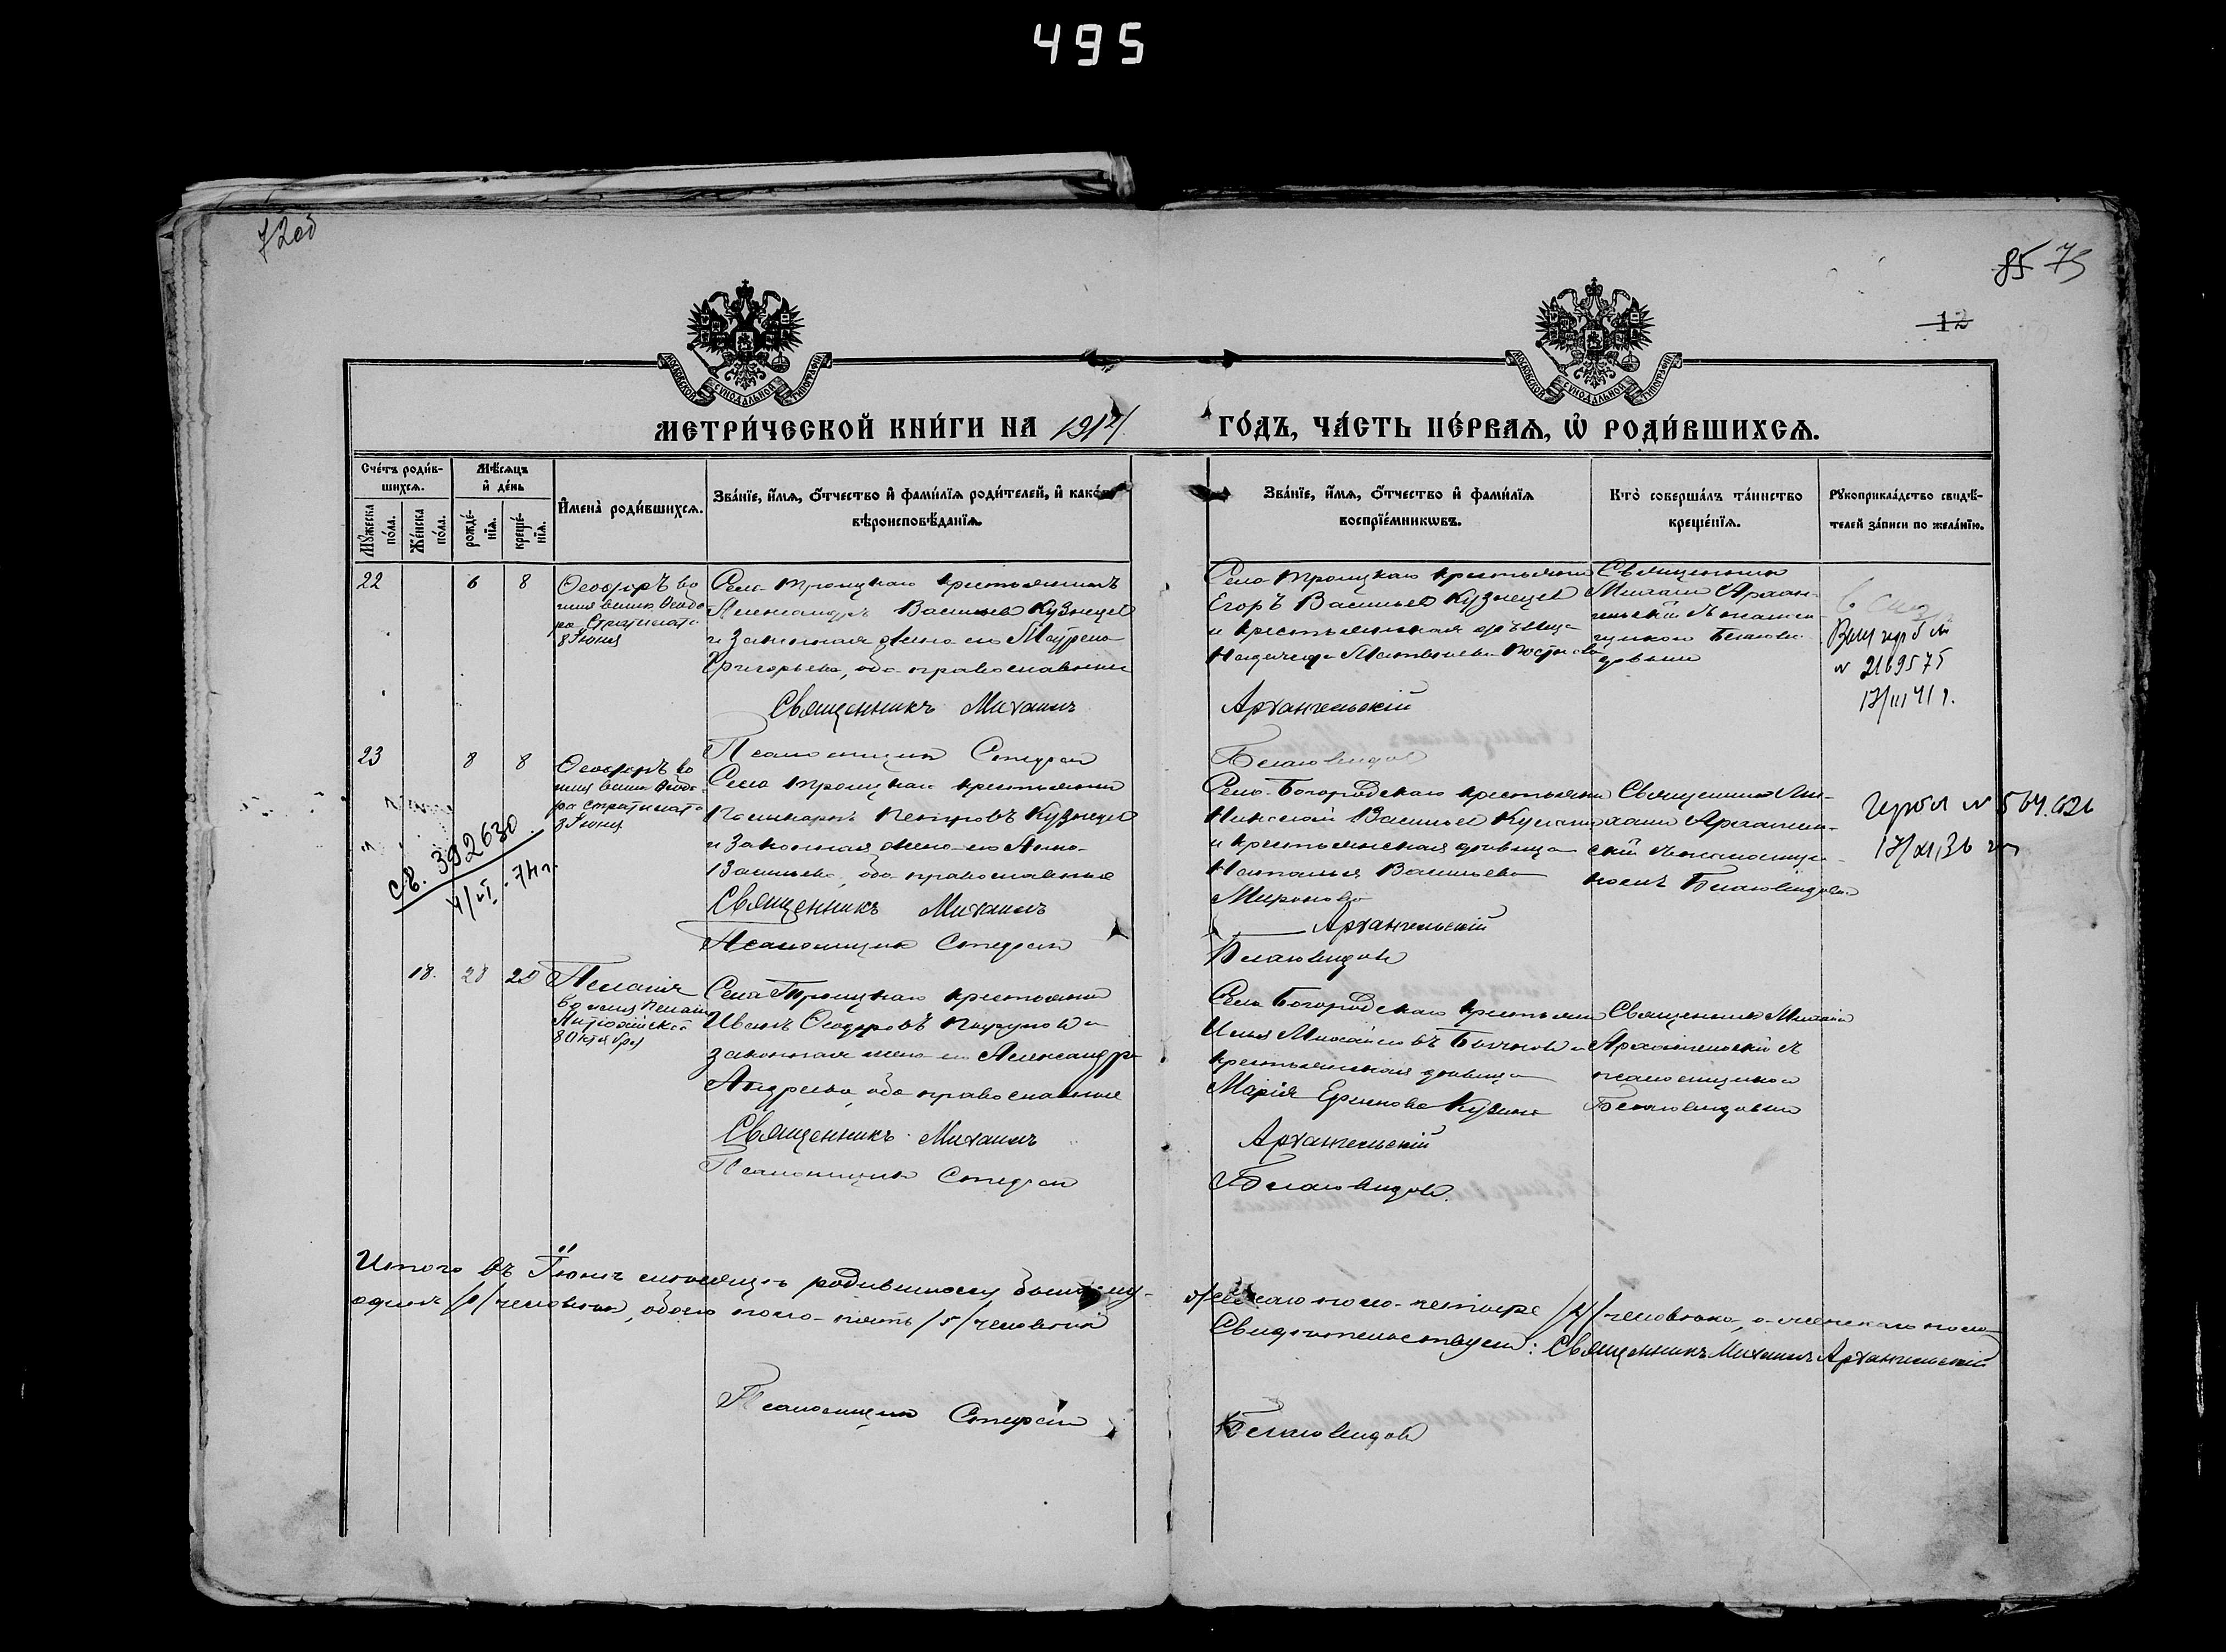 495
72 об
85 75
12
МОСКОВСКОЙ СѴНОДАЛЬНОЙ ТИПОГРАФІИ
МОСКОВСКОЙ СѴНОДАЛЬНОЙ ТИПОГРАФІИ
МЕТРИ́ЧЕСКОЙ КНИ́ГИ НА 1914 ГО́ДЪ, ЧА́СТЬ ПЕ́РВАѦ, Ѡ҆ РОДИ́ВШИХСѦ.
Сче́тъ роди́в-
шихсѧ.
Мѣ́сѧцъ
и҆ де́нь
Мꙋ́жеска
по́ла.
Же́нска
по́ла.
рожде́-
нїѧ.
креще́-
нїѧ.
И҆мена̀ роди́вшихсѧ.
Зва́нїе, и҆́мѧ, ѻ҆́тчество и҆ фами́лїѧ роди́телей, и҆ како́гѡ
вѣроисповѣ́данїѧ.
Зва́нїе, и҆́мѧ, ѻ҆́тчество и҆ фами́лїѧ
воспрїе́мникѡвъ.
Кто̀ соверша́лъ та́инство
креще́нїѧ.
Рꙋкоприкла́дство свидѣ́-
телей за́писи по жела́нїю.
22 6 8
Ѳеодоръ во
имя велик. Ѳеодо-
ра Стратилата
8 Іюня
Села Троицкаго крестьянинъ
Александръ Васильевъ Кузнецовъ
и законная жена его Мавра
Григорьева, оба православные
Священникъ Михаилъ
Псаломщикъ Стефанъ
Села Троицкаго крестьянинъ
Егоръ Васильевъ Кузнецовъ
и крестьянская дѣвица
Надежда Матвѣева
Архангельскій
Бѣлавидовъ
Священникъ
Михаилъ Архан-
гельскій съ псалом-
щикомъ Бѣлави-
довымъ
№ 2169575
17/III 41 г.
23 8 8
Ѳеодоръ во
имя велик. Ѳеодо-
ра Стратилата
8 Іюня
св. 392630
74 г.
Села Троицкаго крестьянинъ
Петровъ Кузнецовъ
и законная жена его Анна
Васильева, оба православные
Священникъ Михаилъ
Псаломщикъ Стефанъ
Села Богородскаго крестьянинъ
Николай Васильевъ
и крестьянская дѣвица
Наталья Васильева
Миронова
Архангельскій
Бѣлавидовъ
Священникъ Ми-
хаилъ Архангель-
скій съ псаломщи-
комъ Бѣлавидовымъ
№ 564.626
18. 28 29
Пелагія
во имя Пелагіи
Антіохійской
8 Октября
Села Троицкаго крестьянинъ
Иванъ Ѳеодоровъ и
законная жена его Александра
Андреева, оба православные
Священникъ Михаилъ
Псаломщикъ Стефанъ
Села Богородскаго крестьянинъ
Илья Михайловъ и
крестьянская дѣвица
Марія Ефимова Кузина
Архангельскій
Бѣлавидовъ.
Священникъ Михаилъ
Архангельскій съ
псаломщикомъ
Бѣлавидовымъ
Итого въ Іюнѣ мѣсяцѣ родившихся было: му-
жескаго пола четыре /4/ человѣка, а женскаго пола
одинъ /1/ человѣкъ, обоего пола пять /5/ человѣкъ
Свидѣтельствуемъ: Священникъ Михаилъ Архангельскій
Псаломщикъ Стефанъ
Бѣлавидовъ